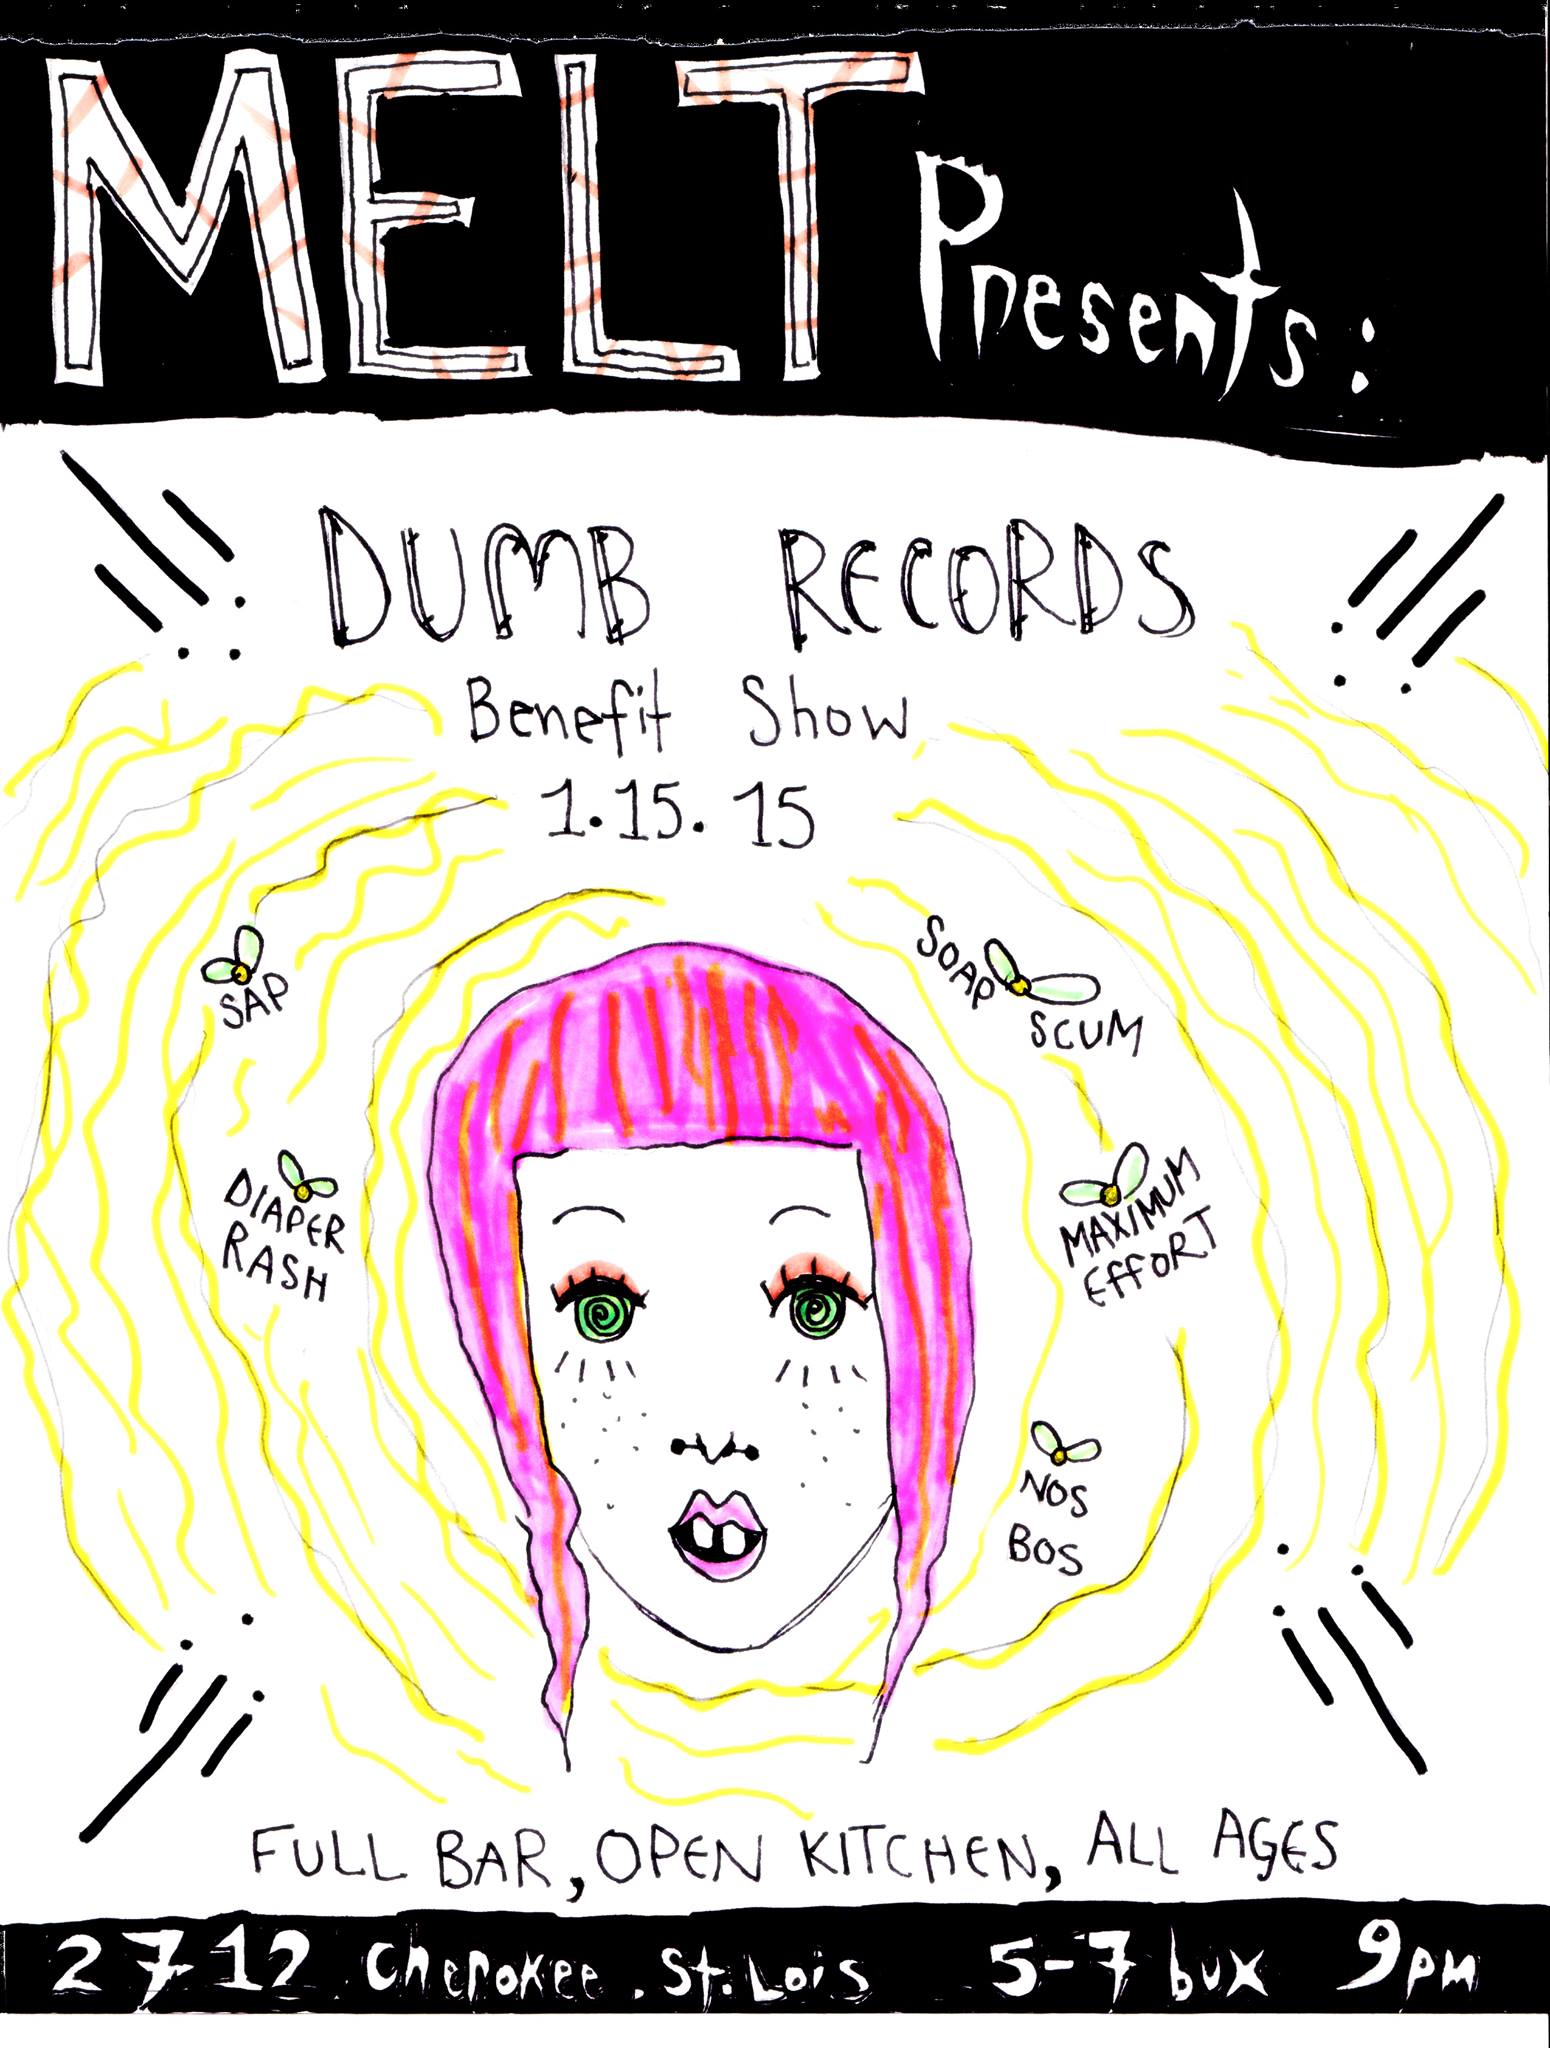 MELT Presents:
DUMB RECORDS
Benefit Show
1.15.15
SAP
SOAP SCUM
DIAPER
RASH
MAXIMUM
EFFORT
NOS
BOS
FULL BAR, OPEN KITCHEN, ALL AGES
2712 Cherokee. St. Lois 5-7 bux 9pm